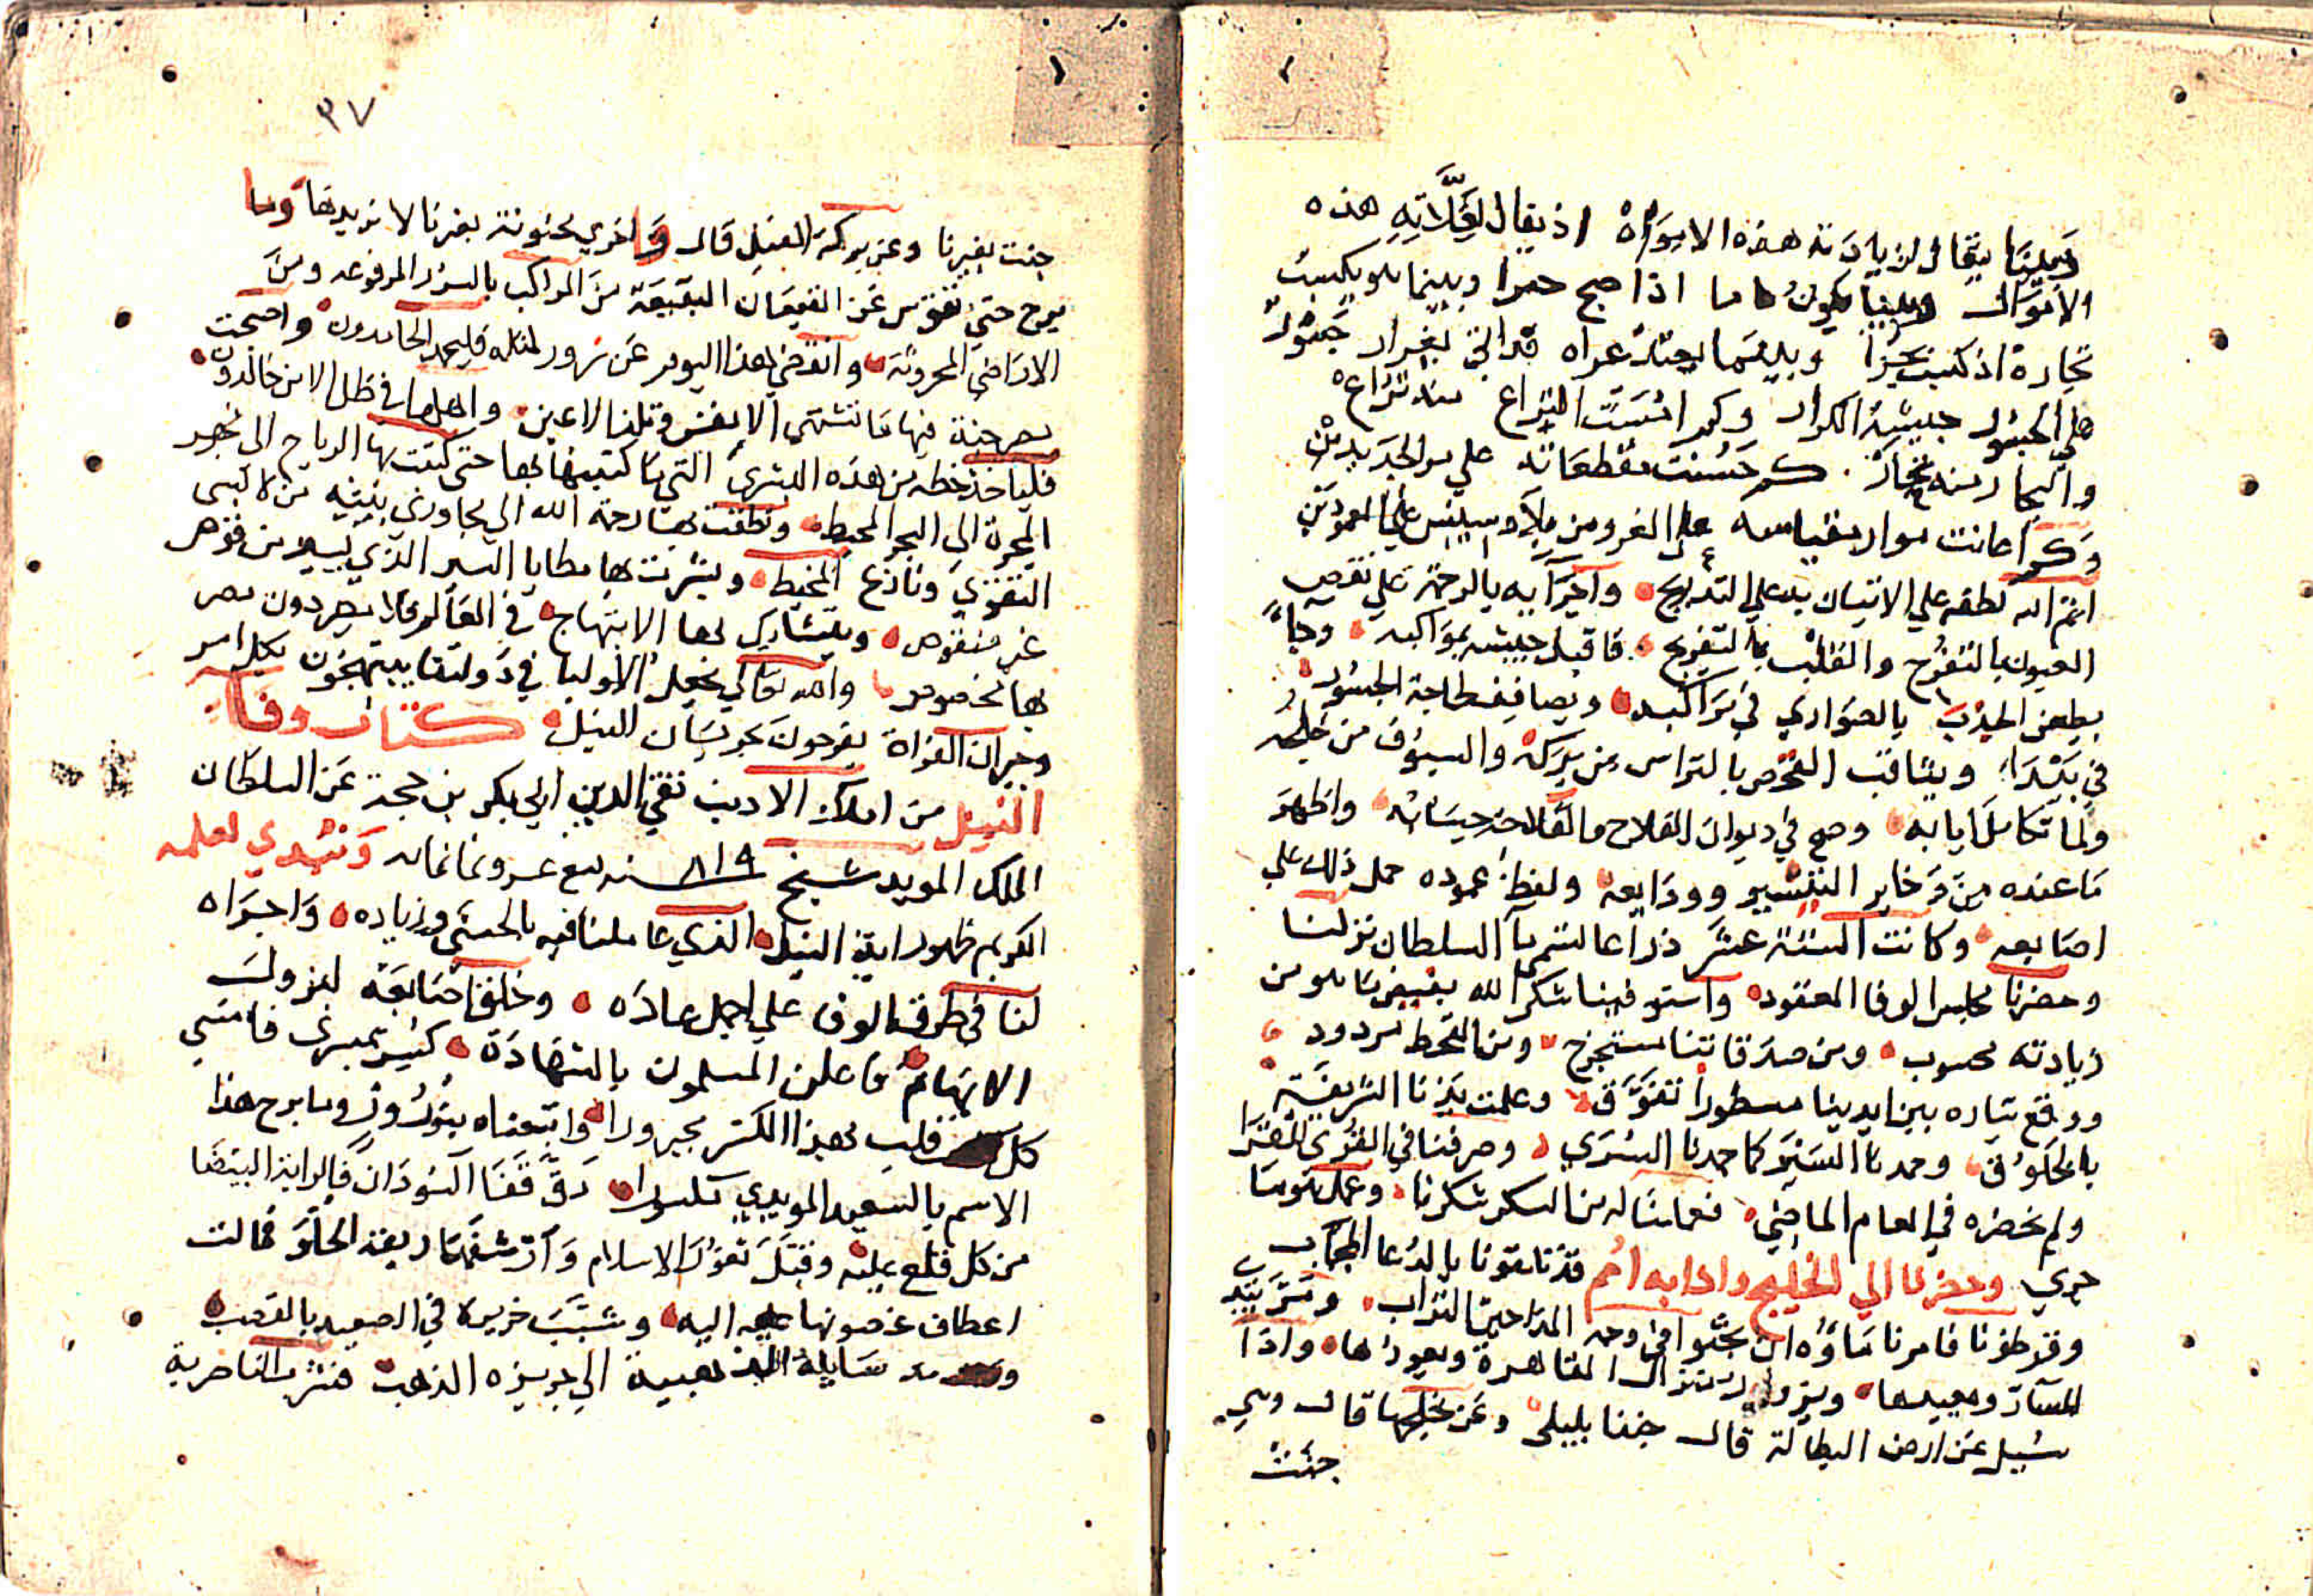 وبينما يقال لزيادته هذه الامواه اذ يقال لغلاته هذه
الاموال وبينا يكون ماما اذا صبح حمرا وبينما هو يكسب
تجارة اذ كسب بحرا وبينما يحتد عراه قد اتي بغرار جسور
علي الجسور جيشه الكرار وكم امست التراع منه تراع
والبحار منه تحار كم حسنت مقطعاته علي مر الجديدين
وكم اعانت موار مقياسه علي الغرو من بلاد سيس علي العمودين
اتم الله لطفه علي الاتيان به علي التدريج واجرآيه بالرحمة علي نقص
العيون بالتفرج والقلب بالتفريج فاقبل جيشه بمواكبه وجآء
يطعن الجدب بالصواري في مراكبه ويصافف لحاجة الجسور
في بيدآ ويثاقف القحوص بالتراس من بركه والسيوف من خلجه
ولما تكامل ايابه وصح في ديوان الفلاح والفلاحة حسابه واظهر
ما عنده من ذخاير التيسير وودايعه ولفظ عموده حمل ذلك علي
اصابعه وكانت الستة عشر ذراعا تسمي مآ السلطان نزلنا
وحضرنا مجلس الوفا المعقود واستوفينا شكر الله بفيض ما هو من
زيادته محسوب ومن صدقاتنا مستخرج ومن القحط مردود
ووقع تياره بين ايدينا سطورا تفوق وعلمت يدنا الشريفة
بالخلوق وحمدنا السير كما حمدنا السري وصرفناه في القري للقرا
ولم نحضره في العام الماضي فعملنا له من الشكر شكرنا وعمل هو ما
جري وحضرنا الي الخليج واذا به امم قد تلقونا بالدعا المجاب
وقرطونا فامرنا ماؤه ان يحثوا في وجه المداحين التراب ومر يبد
المسار ويعيدها ويزور منازل القاهرة ويعودها واذا
سيل عن ارض الطبالة قال جننا بليلي وعن خليجها قال وهي
جنت
٣٧
جنت بغيرنا وعن بركة الفيل قال واخري مجنونة بغيرنا لا نريدها وما
برح حتي تعوض عن القيعان البقيعة من المراكب بالسرر المرفوعه ومن
الاراضي المحروثة وانقضي هذا اليوم عن سرور لمثله فليحمد الحامدون واصبحت
مصر جنة فيها ما تشتهي الانفس وتلذ الاعين واهلها في ظل الامن خالدون
فلياخذ حظه من هذه البشري التي ما كتبنا بها حتي كتبت بها الرياح الي نهر
المجرة الي البحر المحيط ونطقت بها رحمة الله الي مجاوري بيته من لابسي
التقوي ونازعي المخيط وبشرت بها مطايا السير الذي يسير من قوص
غير منقوص ويتشارك بها الابتهاج في العالم فلا مصر دون مصر
بها مخصوص والله تعالي يجعل الاوليا في دولتنا يبتهجون بكل امر
وجيران الفراة يفرحون بجريان النيل كتاب وفاء
النيل من املاء الاديب تقي الدين ابي بكر بن حجة عن السلطان
الملك المويد شيخ ٨١٩ سنه تسع عشر وثمانمائه ونبدي لعلمه
الكريم ظهور اية النيل الذي عاملنا فيه بالحسني وزياده واجراه
لنا في طرق الوفا علي اجمل عاده وخلق اصابعه ليزول
الايهام فاعلن المسلمون بالشهادة كسر بمسري فامسي
كل قلب بهذا الكسر مجبورا واتبعناه بنوروز وما برح هذا
الاسم بالسعيد المويدي مكسورا دق قفا السودان فالراية البيضا
من كل قلع عليه وقبل ثغور الاسلام وارشفها ريقه الحلو فمالت
اعطاف غصونها اليه وشبب خريره في الصعيد بالقصب
ومد سبايك الذهبية الي جزيرة الذهب فضرب الناصرية